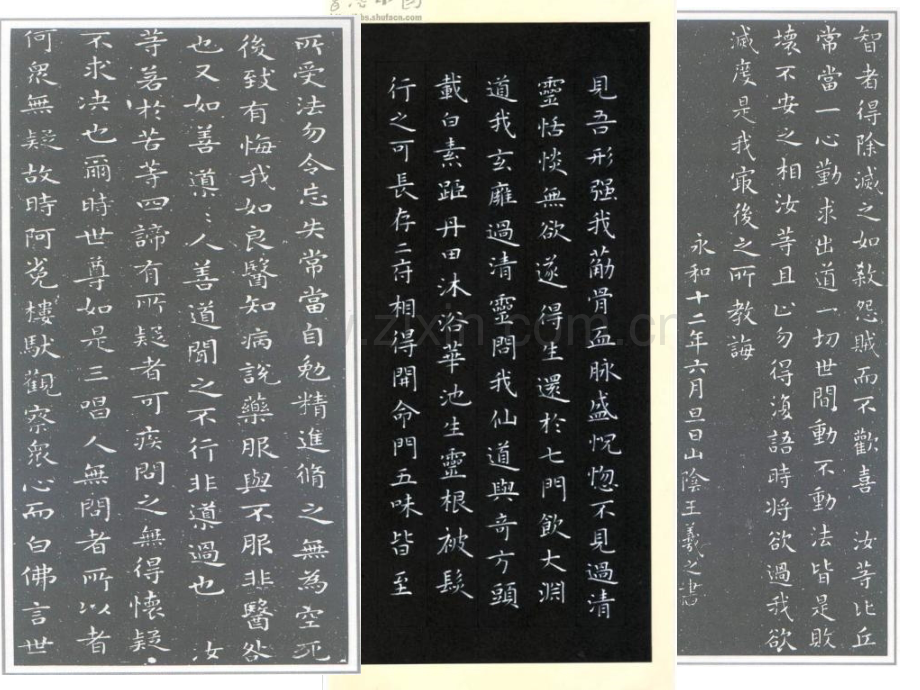 所受法勿令忘失常當自勉精進脩之無為空死
後致有悔我如良醫知病說藥服與不服非醫咎
也又如善導〻人善道聞之不行非導過也 汝
等若於苦等四諦有所疑者可疾問之無得懷疑
不求決也爾時世尊如是三唱人無問者所以者
何眾無疑故時阿㝹樓馱觀察眾心而白佛言世
bs.shufacn.com
見吾形强我葪骨血脉盛怳惚不見過清
靈恬惔無欲遂得生還於七門飲大淵
道我玄廱過清靈問我仙道與奇方頭
載白素距丹田沐浴華池生靈根被髮
行之可長存二府相得開命門五味皆至
智者得除滅之如殺怨賊而不歡喜 汝等比丘
常當一心勤求出道一切世間動不動法皆是敗
壞不安之相汝等且止勿得復語時将欲過我欲
滅度是我最後之所教誨
永和十二年六月旦日山陰王羲之書
www.zixin.com.cn